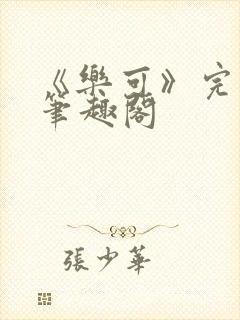 《樂可》完
筆趣閣
張少華